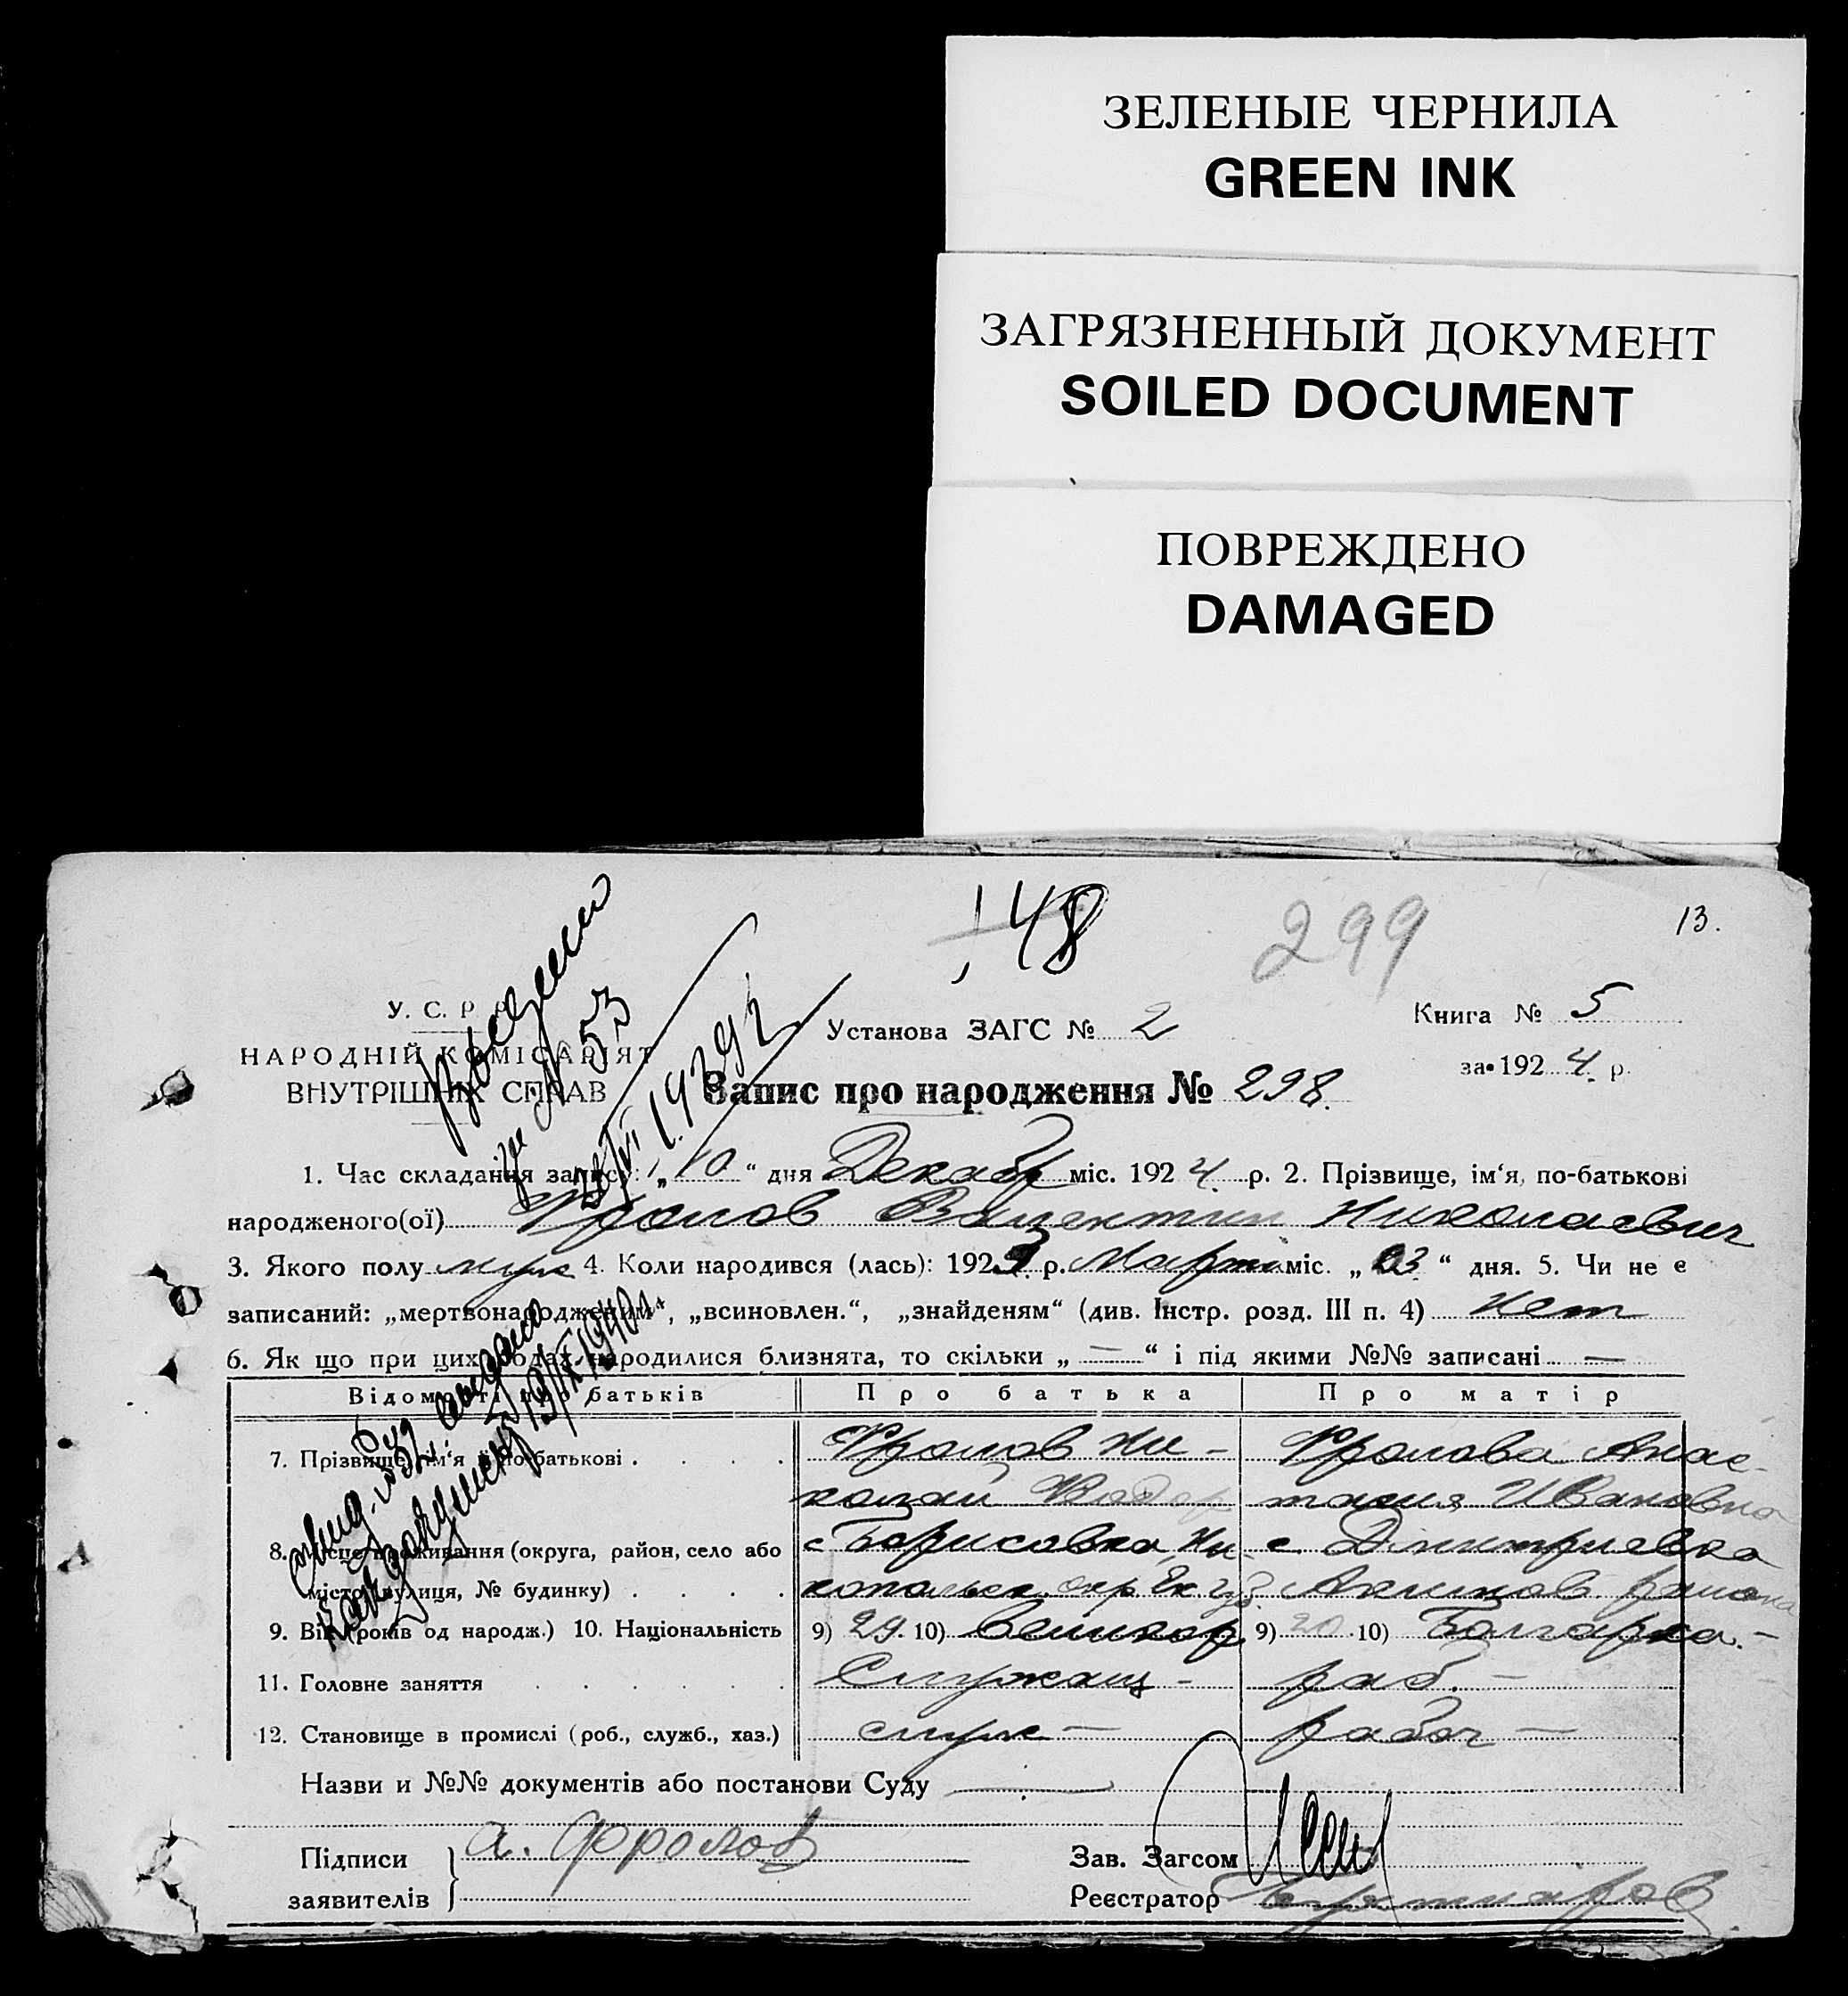 ЗЕЛЕНЫЕ ЧЕРНИЛА
GREEN INK
ЗАГРЯЗНЕННЫЙ ДОКУМЕНТ
SOILED DOCUMENT
ПОВРЕЖДЕНО
DAMAGED
148
299
13.
У. С. Р. Р.
НАРОДНІЙ КОМІСАРІЯТ
ВНУТРІШНІХ СПРАВ
Установа ЗАГС № 2
Книга № 5
за 1924 р.
Запис про народження № 298.
№ 53
1939 г
1. Час складання запису: „10“ дня Декабр міс. 1924 р. 2. Прізвище, ім‘я, по-батькові
народженого(ої) Фролов Валентин Николаевич
3. Якого полу муж 4. Коли народився (лась): 192 р. Марта міс. „ 03 “ дня. 5. Чи не є
записаний: „мертвонародженим“, „всиновлен.“, „знайденям“ (див. Інстр. розд. III п. 4) Нет
6. Як що при цих родах народилися близнята, то скільки „ — “ і під якими №№ записані —
Відомості про батьків Про батька Про матір
7. Прізвище, ім‘я і по-батькові . . . . Фролов Ни- Фролова Анас-
колай тасия Ивановна
8. Місце проживання (округа, район, село або с Борисовка Ни- с. Димитриевка
місто, вулиця, № будинку) . . . . копольск. окр Акимов района
9. Вік (років од народж.) 10. Національність 9) 29. 10) Великор. 9) 20 10) Болгарка. -
11. Головне заняття . . . . . . Служащ - раб. -
12. Становище в промислі (роб., служб., хаз.) служ — рабоч —
Назви и №№ документів або постанови Суду —
Підписи
заявителів
а. Фролов
Зав. Загсом
Реєстратор